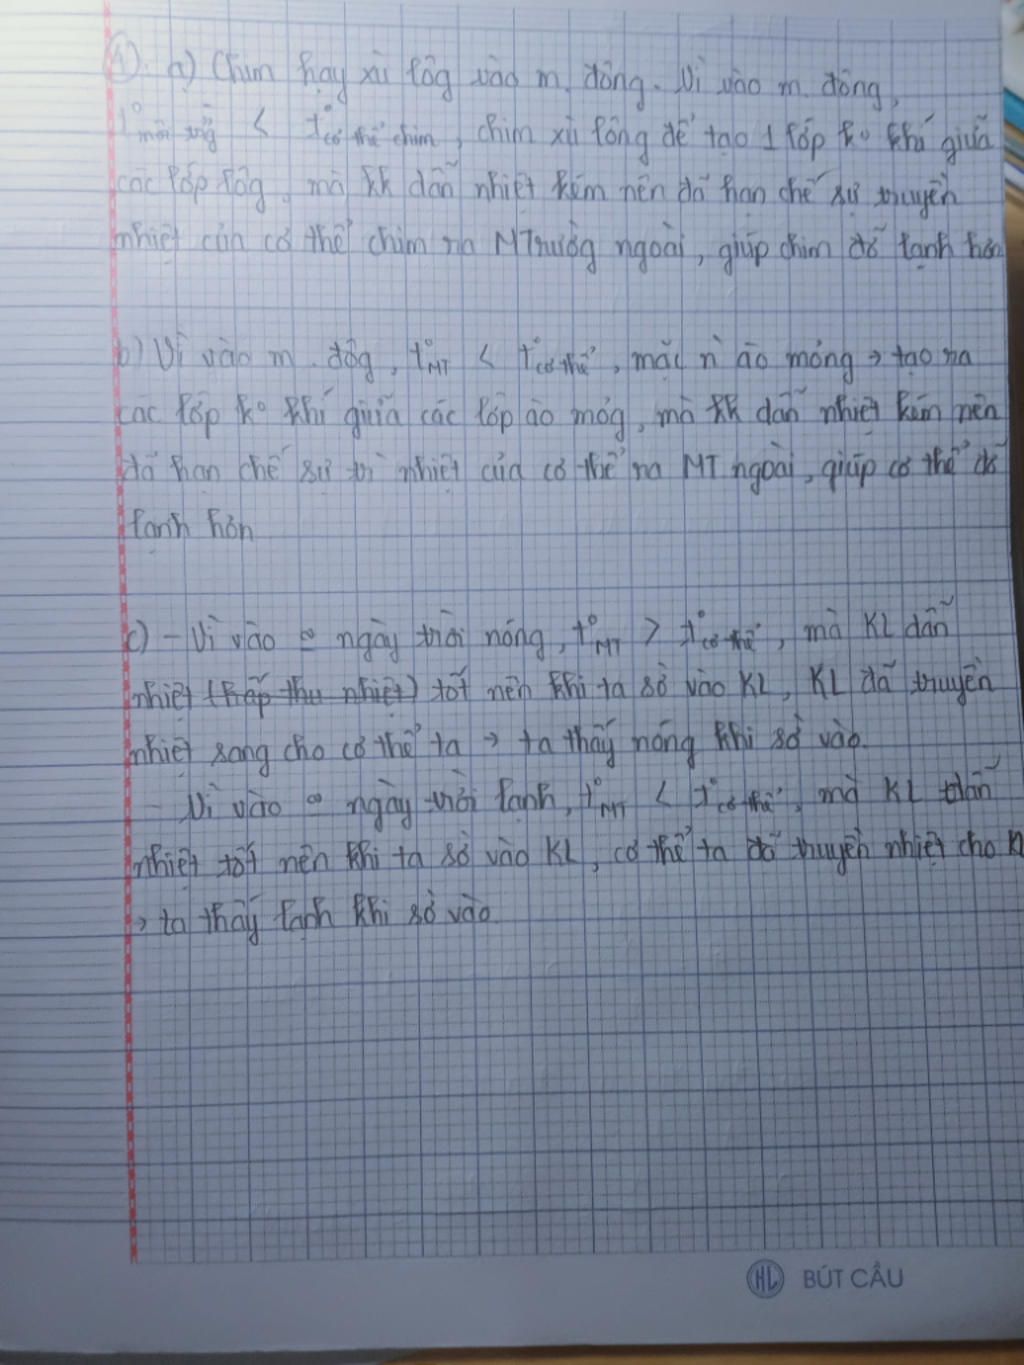 1). a) Chim hay xù lôg vào m. đông. Vì vào m. đông,
t° môi trg < t° cơ thể chim, chim xù lông để tạo 1 lớp k° khí giữa
các lớp lôg, mà kk dẫn nhiệt kém nên đã hạn chế sự truyền
nhiệt của cơ thể chim ra MTrườg ngoài, giúp chim đỡ lạnh hơn
b) Vì vào m. đôg, t°MT < t°cơ thể, mặc n` áo mỏng → tạo ra
các lớp k° khí giữa các lớp áo mỏg, mà kk dẫn nhiệt kém nên
đã hạn chế sự tr` nhiệt của cơ thể ra MT ngoài, giúp cơ thể đỡ
lạnh hơn
c) - Vì vào ngày trời nóng, t°MT > t°cơ thể, mà KL dẫn
nhiệt (hấp thu nhiệt) tốt nên khi ta sờ vào KL, KL đã truyền
nhiệt sang cho cơ thể ta → ta thấy nóng khi sờ vào.
- Vì vào ngày trời lạnh, t°MT < t°cơ thể, mà KL dẫn
nhiệt tốt nên khi ta sờ vào KL, cơ thể ta đã truyền nhiệt cho
→ ta thấy lạnh khi sờ vào.
HL BÚT CẦU